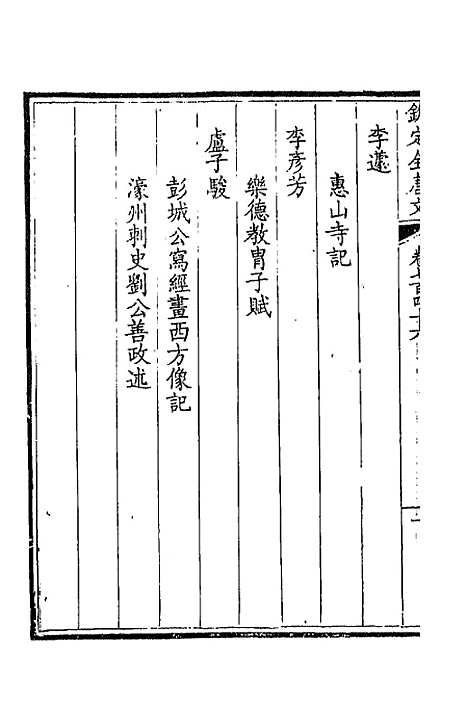 欽定全唐文
李蘧
惠山寺記
李彥芳
樂德教胄子賦
盧子駿
彭城公寫經畫西方像記
濠州刺史劉公善政述